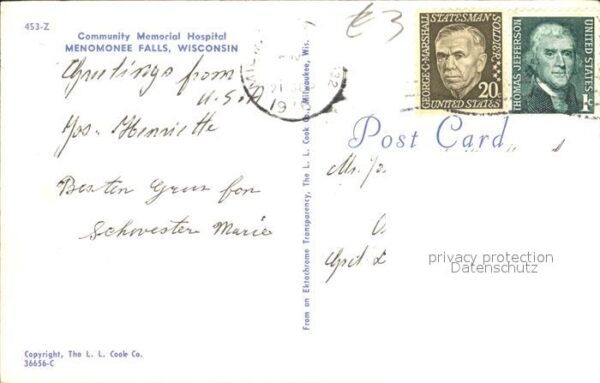 453-Z
Community Memorial Hospital
MENOMONEE FALLS, WISCONSIN
Greetings from
U.S.A
Jos- Henriette
Besten Gruss fon
Schwester Marie
Copyright, The L. L. Cook Co.
36656-C
From an Ektachrome Transparency, The L. L. Cook Co., Milwaukee, Wis.
£3
GEORGE C. MARSHALL
STATESMAN
SOLDIER
20c
UNITED STATES
THOMAS JEFFERSON
UNITED STATES
1c
Post Card
privacy protection
Datenschutz